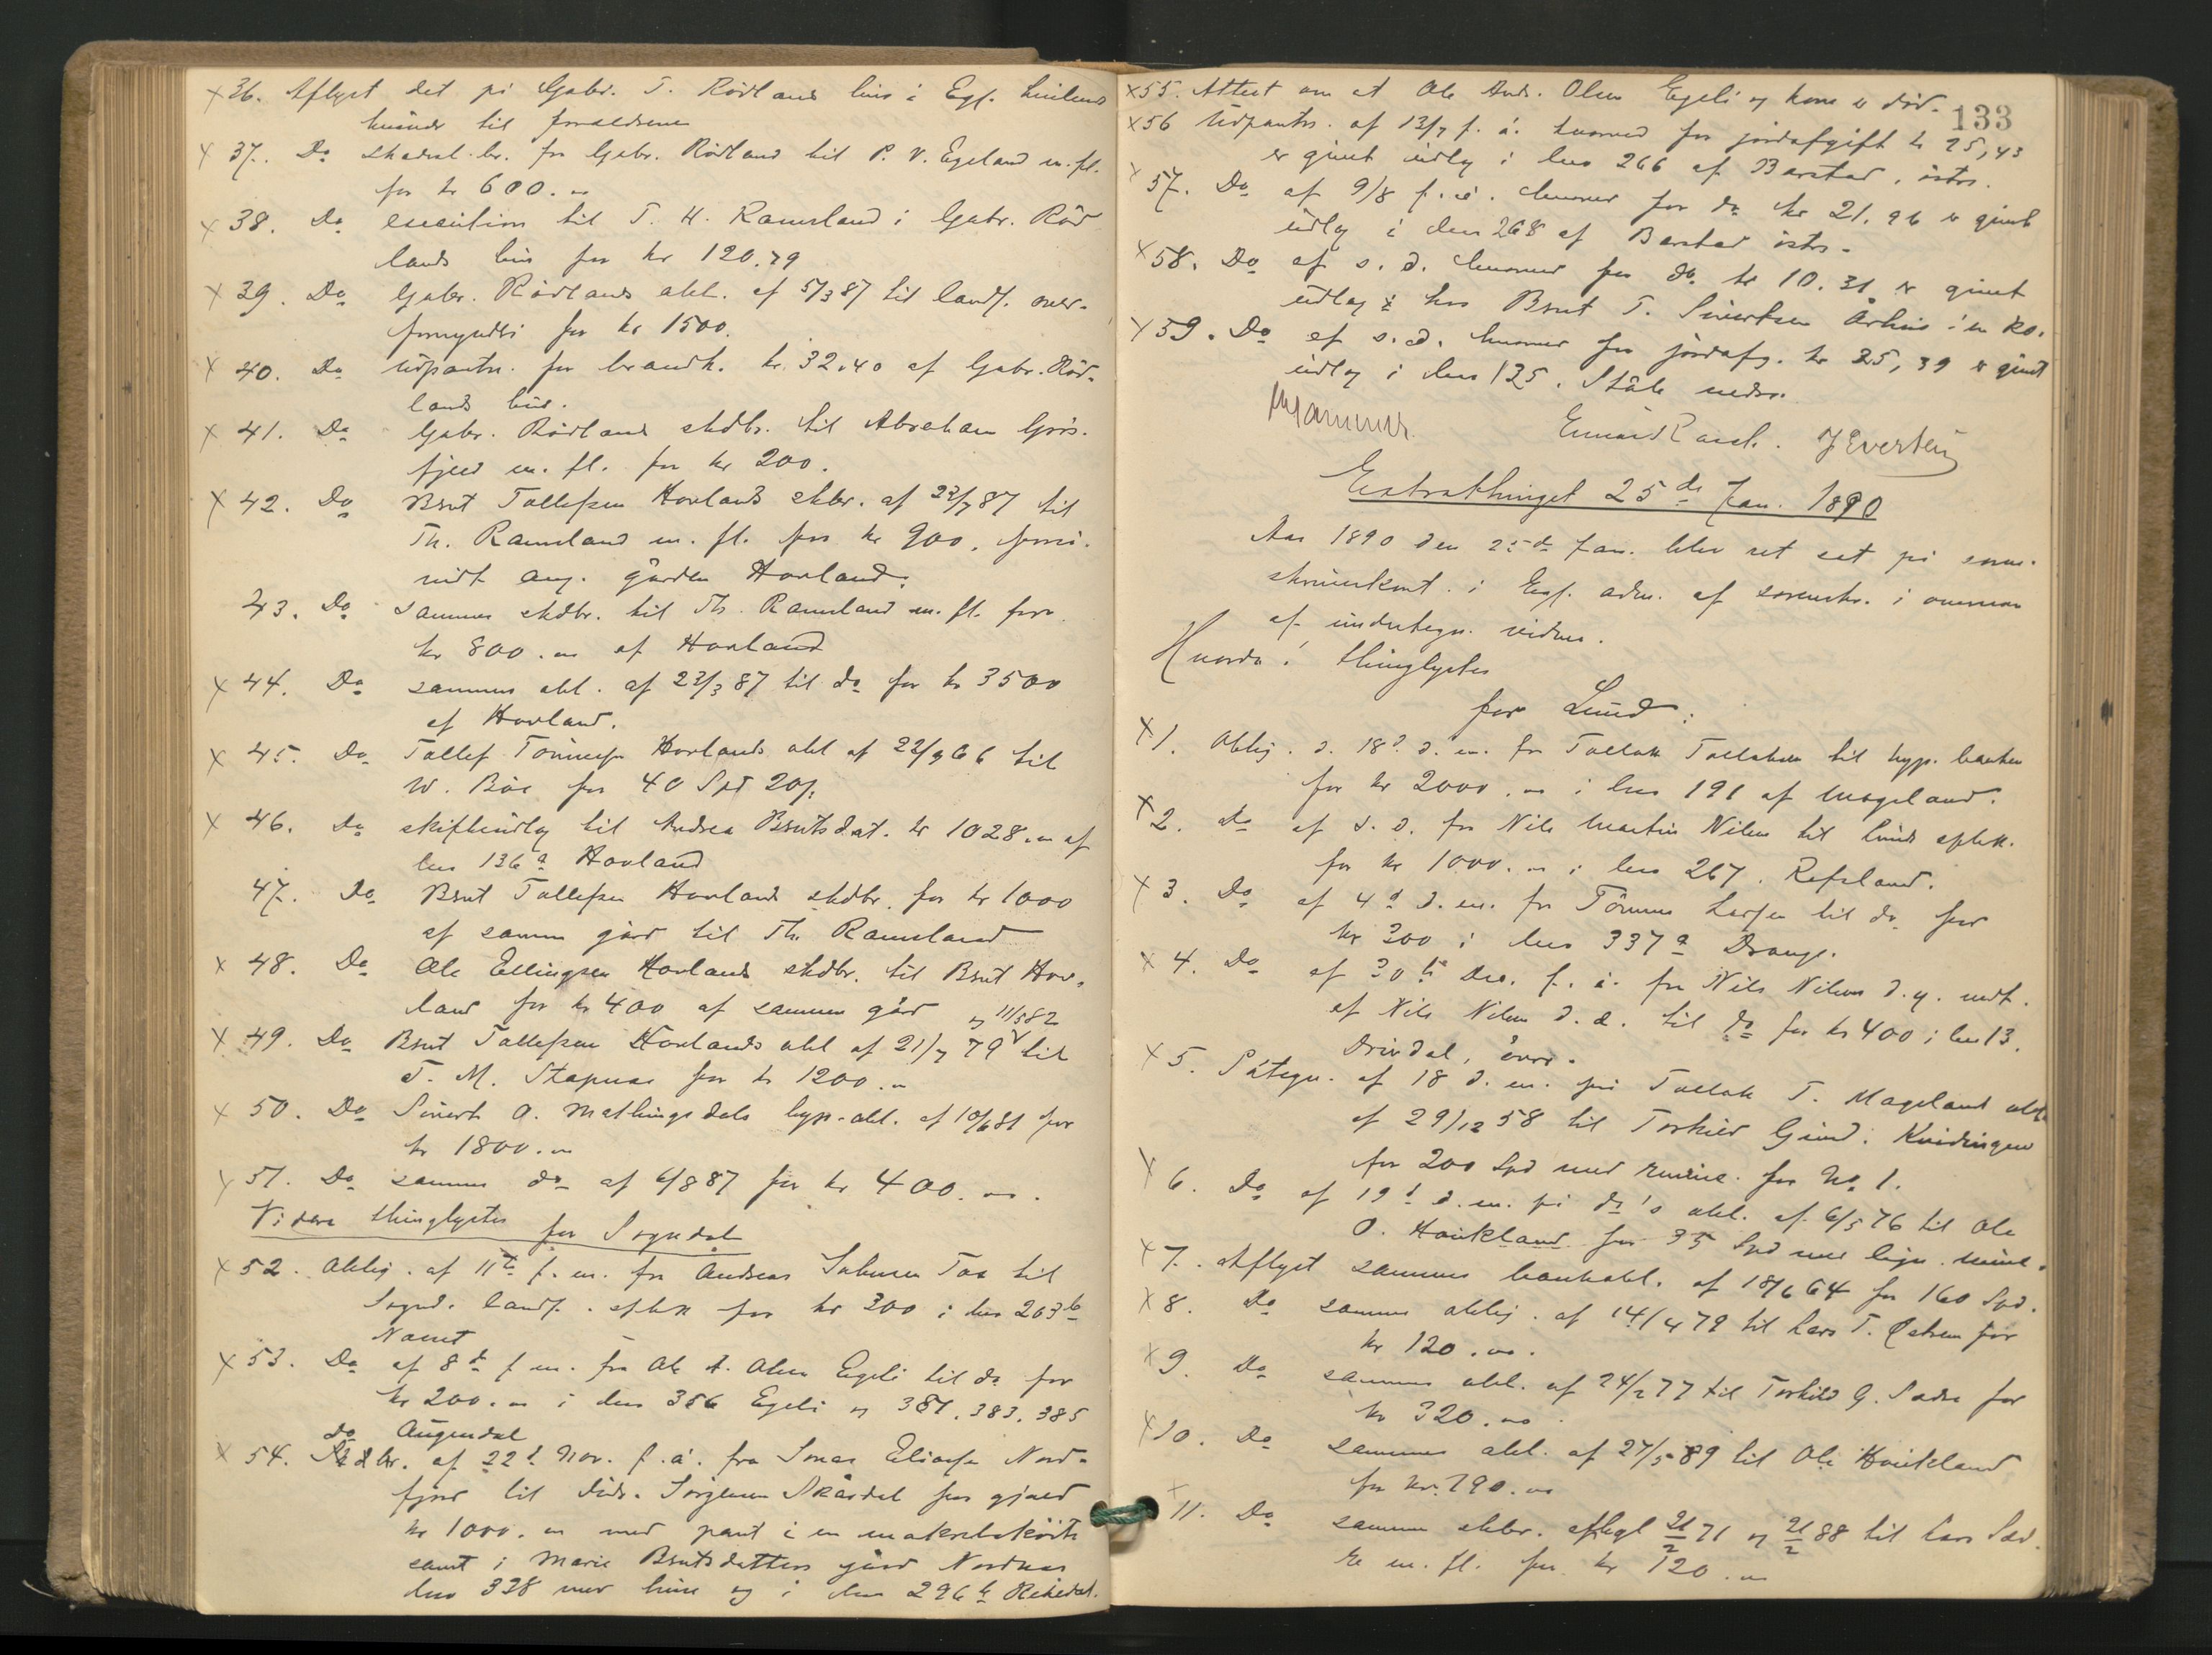 x 36. Aflyst det på Gabr. T. Rødland hus i Egs.
til forældrene
x 37. Do skadesl.br. fra Gabr. Rødland til P. V. Egeland m. fl.
for kr 600.
x 38. Do execution til T. H. Ramsland i Gabr. Rød
lands hus for kr 120.79
x 39. Do Gabr. Rødlands obl. af 5/3 87 til landf. over-
formynderi for kr 1500.
x 40. Do udpantn. for brandk. kr. 32.40 af Gabr. Rød-
lands hus.
x 41. Do Gabr. Rødland skdbr. til Abraham Grøs-
fjeld m. fl. for kr 200.
x 42. Do Bent Tollefsen Hovlands skbr. af 23/7 87 til
Th. Ramsland m. fl. for kr 900,
ang. gården Hovland.
43. Do sammes skdbr. til Th. Ramsland m. fl. for
kr 800. af Hovland
x 44. Do sammes obl. af 23/3 87 til do for kr 3500
af Hovland.
x 45. Do Tollef Tønnesn Hovlands obl af 22/9 66 til
W. Bøe for 40 Spd 20 s.
x 46. Do skifteudlæg til Andrea Bentsdat. kr 1028. af
lno 136 a Hovland
47. Do Bent Tollefsen Hovlands skdbr. for kr 1000
af samme gård til Th. Ramsland
x 48. Do Ole Ellingsen Hovlands skdbr. til Bent Hov-
land for kr 400 af samme gård
og 11/5 82
x 49. Do Bent Tollefsen Hovlands obl af 21/7 79 til
T. M. Stapnæs for kr 1200.
x 50. Do Sivert O. Mathingsdals hyp. obl. af 10/6 81 for
kr 1800.
x 51. Do sammes do af 6/8 87 for kr 400.
Videre thinglystes for Sogndal
x 52. Oblig. af 11te f. m. fra Andreas Salvesen Toa til
Sognd. landf. for kr 300 i lno 203 b
x 53. Do af 8de f. m. fra Ole A. Olsen Egeli til do for
kr 200. i lno 356 Egeli og 381. 383. 385
do Augendal
x 54. Skdbr. af 22de Nov. f. å. fra Jonas Eliasn Nord-
fjord til Jørgensen Skårdal for gjæld
kr 1000. med pant i en
samt i Marie Bentsdatters gård Nordnæs
lno 328 med huse og i lno 296 b Rekedal.
133
x 55. Attest om at Ole And. Olsen Egeli og kone er død.
x 56 Udpantn. af 13/7 f. å. hvorved for jordafgift kr 25,43
er givet udlæg i lno 266 af Barstad, østre.
x 57. Do af 9/8 f. å. hvorved for do kr 21.96 er givet
udlæg i lno 268 af Barstad østre.
x 58. Do af s. d. hvorved for do kr 10.31 er givet
udlæg hos Bent T. Sivertsen Århus i en ko.
x 59. Do af s. d. hvorved for jordafg. kr 35,39 er givet
udlæg i lno 125. Ståle nedre.
Einar Rasch. J Evertsen
Extrathinget 25de Jan. 1890
Aar 1890 den 25de Jan. blev ret sat på soren-
skriverkont. i Egs. adm. af sorenskr. i overvær
af undertegn. vidner.
Hvorda! thinglystes
for Lund:
x 1. Oblig. d. 18de d. m. fra Tollak Tollaksen til hyp. banken
for kr 2000. i lno 191 af Mageland.
x 2. do af s. d. fra Nils Martin Nilsen til Lunds
for kr 1000. i lno 267. Refsland.
x 3. Do af 4de d. m. fra Tønnes Larsen til do for
kr 300 i lno 337 a Drange.
x 4. Do af 30te Dec. f. å. fra Nils Nilsen d. y. medt.
af Nils Nilsen d. æ. til do for kr 400 i lno 13.
Drivdal, øvre.
x 5. Påtegn. af 18 d. m. på Tollak T. Mageland obl
af 29/12 58 til Torkild Gund. Kvidingen
for 200 Spd med for No 1.
x 6. Do af 19d d. m. på do's obl. af 6/5 76 til Ole
O. Haukland for 35 Spd med lign.
x 7. Aflyst sammes bankobl. af 18/6 64 for 160 Spd.
x 8. Do sammes oblig. af 14/4 79 til Lars T. for
kr 120.
x 9. Do sammes obl. af 24/2 77 til Torkild G. for
kr 320.
x 10. Do sammes obl. af 27/5 89 til Ole Haukland
for kr. 790.
x 11. Do sammes skbr. aflyst 21/2 71 og 21/2 88 til Lars
m. fl. for kr 120.